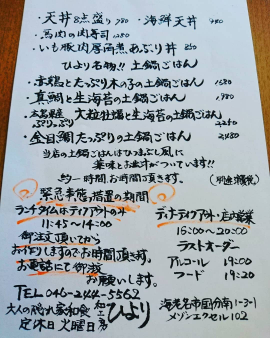 ・天丼8点盛り 780 ・海鮮天丼 980
・馬肉の肉寿司 1280
・いも豚肉厚酒煮あぶり丼 850
ひより名物!! 土鍋ごはん
・赤鶏とたっぷり木の子の土鍋ごはん 1680
・真鯛と生海苔の土鍋ごはん 1980
・大粒牡蠣と生海苔の土鍋ごはん
・金目鯛たっぷりの土鍋ごはん 2480
当店の土鍋ごはんはひつまぶし風に
薬味とお出汁がついています!!
約一時間お時間頂きます。
緊急事態措置の期間
ランチタイムはテイクアウトのみ
11:45〜14:00
御注文頂いてから
お作りしますのでお時間頂きます。
お電話にて御注文
お願いします。
ディナーテイクアウト・店内営業
16:00〜20:00
ラストオーダー
アルコール 19:00
フード 19:20
TEL 046-244-5562
大人の隠れ家和食 ひより
定休日 火曜日
海老名市国分南1-3-1
メゾンエクセル102